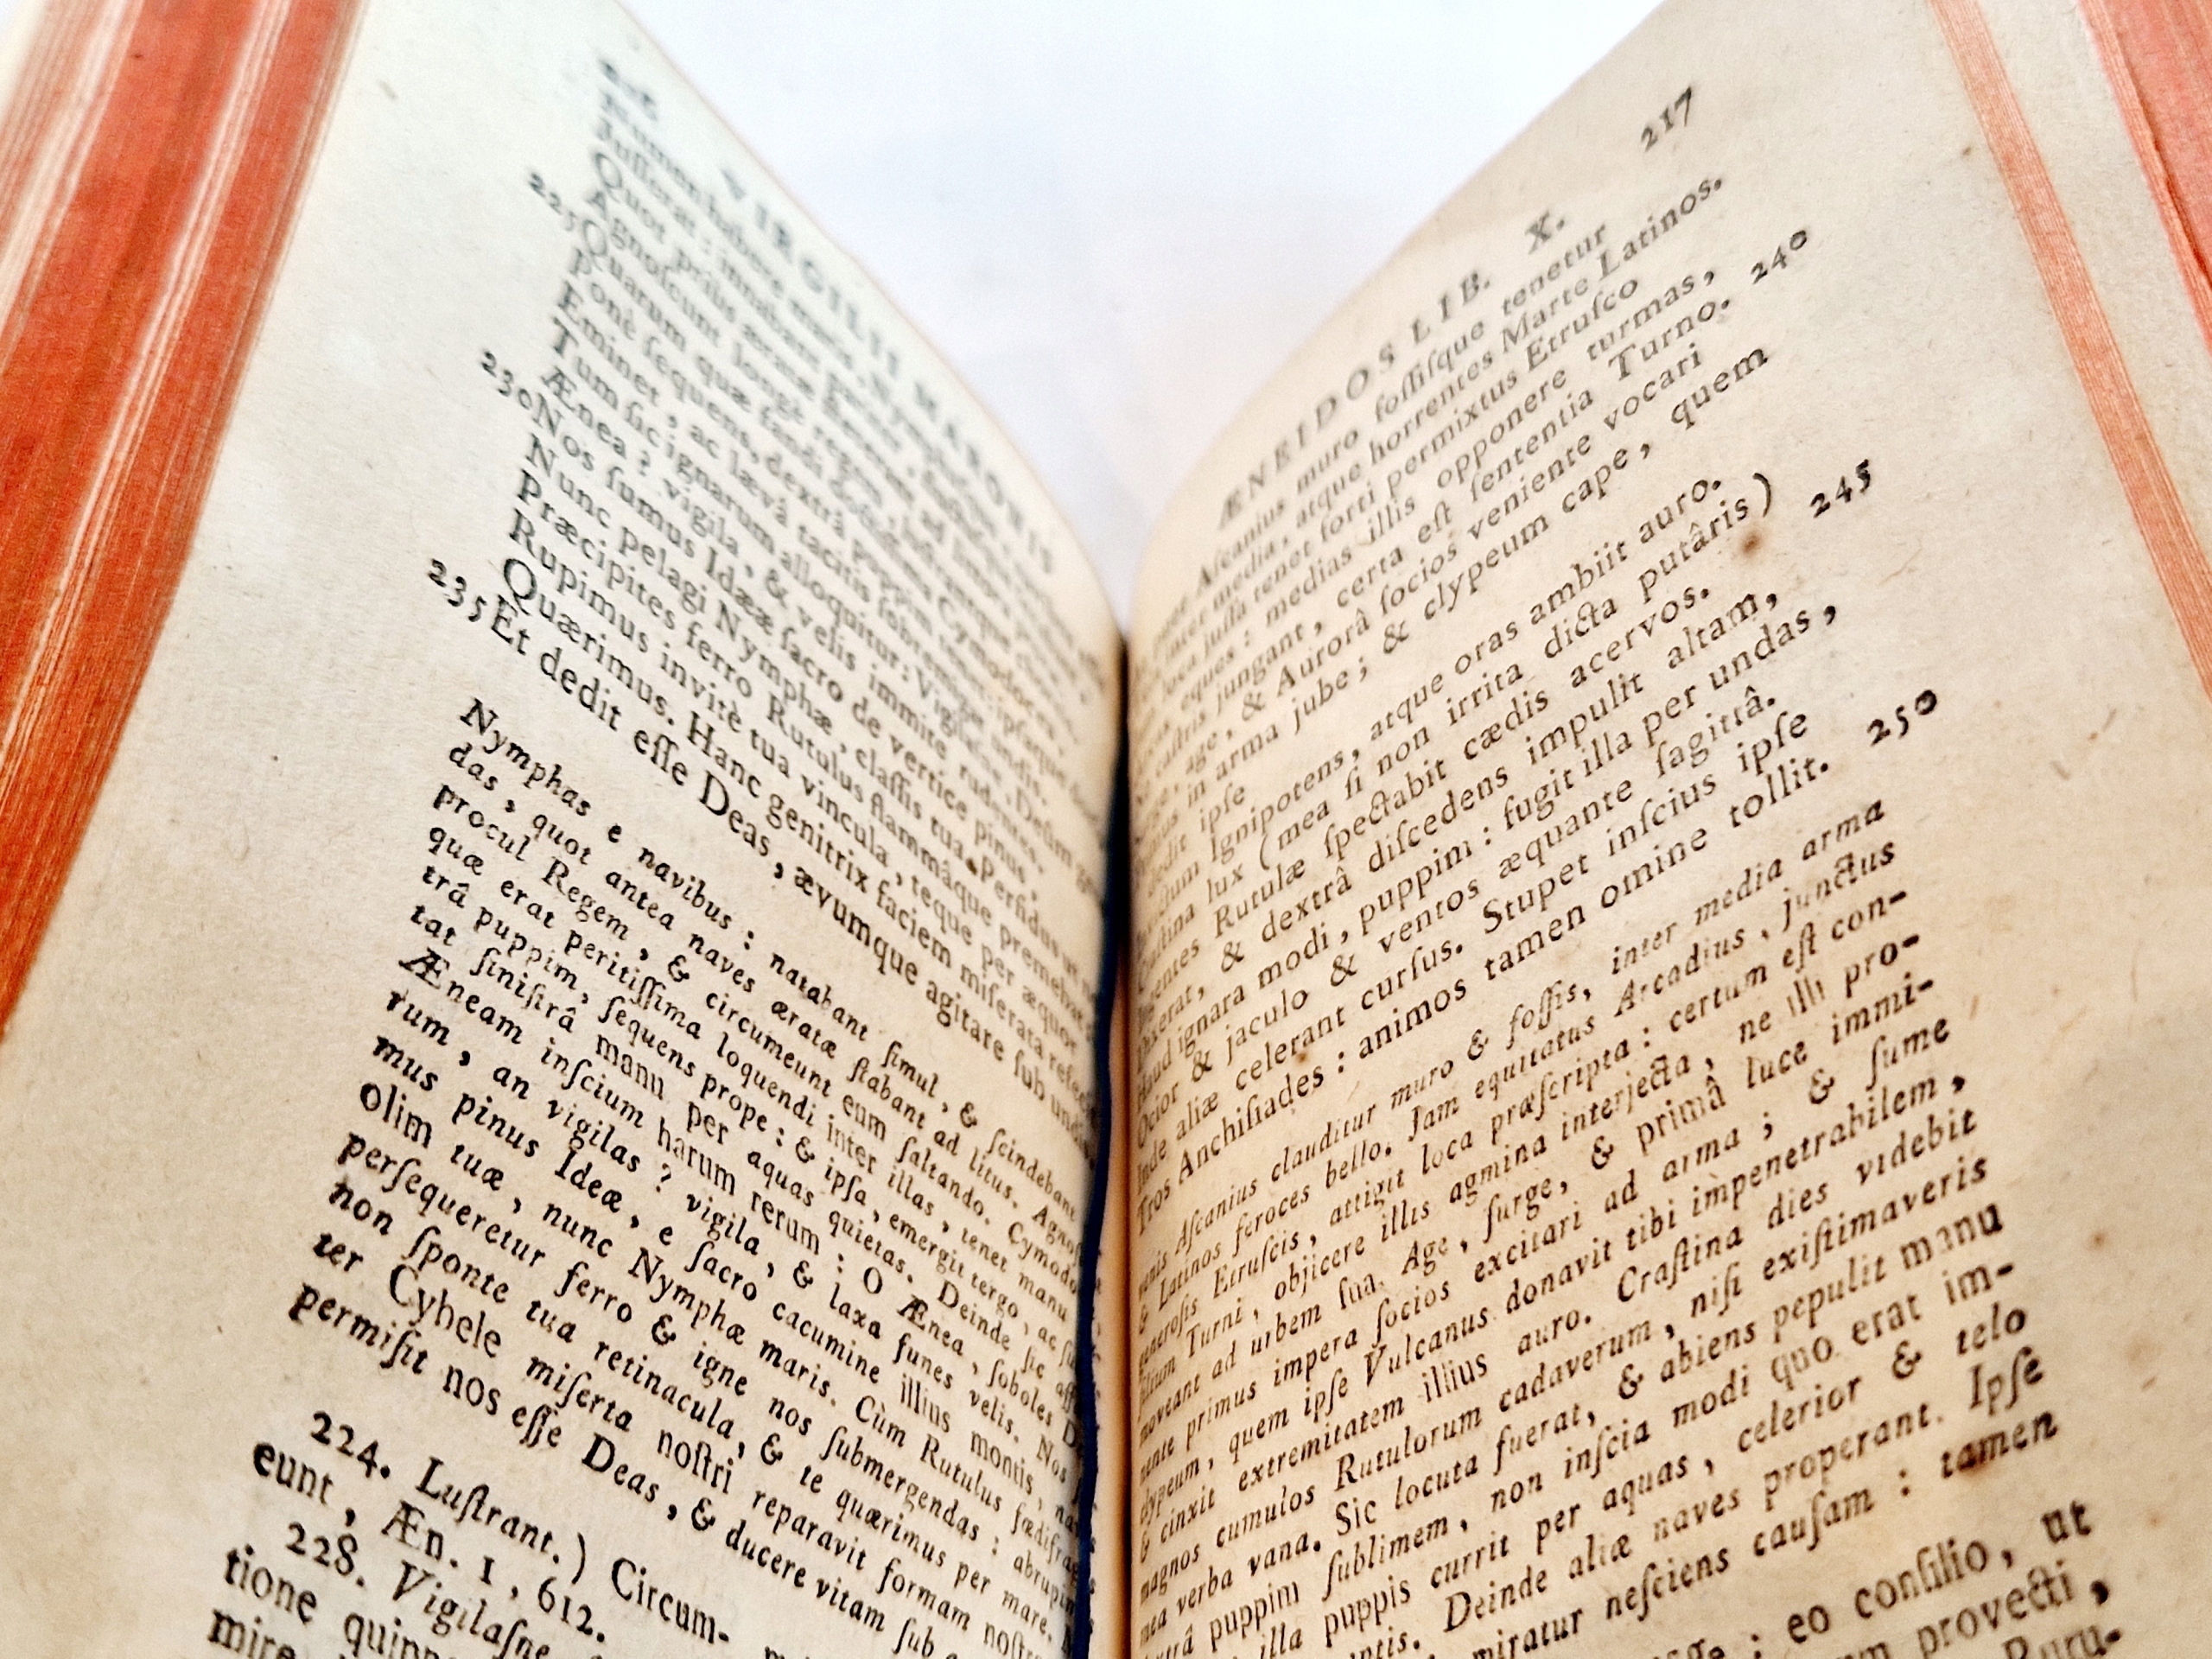 VIRGILII MARONIS
Numen habere maris, Nymphasque
Jusserat: innabant pariter,
Quot priùs æratæ
Agnoscunt longè regem,
225 Quarum quæ fandi
Ponè sequens, dextrâ puppim
Eminet, ac lævâ tacitis
Tum sic ignarum alloquitur: Vigilasne,
Ænea? vigila, & velis immitte rudentes.
230 Nos sumus Idææ sacro de vertice pinus,
Nunc pelagi Nymphæ, classis tua. Perfidus ut
Præcipites ferro Rutulus flammâque premebat,
Rupimus invitè tua vincula, teque per æquor
Quærimus. Hanc genitrix faciem miserata
235 Et dedit esse Deas, ævumque agitare sub undis
Nymphas e navibus: natabant simul, & scindebant
das, quot antea naves æratæ stabant ad litus.
procul Regem, & circumeunt eum saltando.
quæ erat peritissima loquendi inter illas, tenet manu
trâ puppim, sequens prope: & ipsa, emergit tergo, ac
tat sinistrâ manu per aquas quietas. Deinde sic
Æneam inscium harum rerum: O Ænea, soboles
rum, an vigilas? vigila, & laxa funes velis. Nos
mus pinus Ideæ, e sacro cacumine illius montis,
olim tuæ, nunc Nymphæ maris. Cùm Rutulus
persequeretur ferro & igne nos submergendas:
non sponte tua retinacula, & te quærimus per mare.
ter Cybele miserta nostri reparavit formam
permisit nos esse Deas, & ducere vitam sub
224. Lustrant.) Circum-
eunt, Æn. 1, 612.
228. Vigilasne
tione
217
ÆNEIDOS LIB. X.
Ascanius muro fossisque tenetur
media, atque horrentes Marte Latinos.
loca jussa tenet forti permixtus Etrusco
eques: medias illis opponere turmas,
castris jungant, certa est sententia Turno. 240
age, & Aurorâ socios veniente vocari
in arma jube; & clypeum cape, quem
ipse
Ignipotens, atque oras ambiit auro.
lux (mea si non irrita dicta putâris) 245
Rutulæ spectabit cædis acervos.
& dextrâ discedens impulit altam,
Haud ignara modi, puppim: fugit illa per undas,
Ocior & jaculo & ventos æquante sagittâ.
Inde aliæ celerant cursus. Stupet inscius ipse 250
Tros Anchisiades: animos tamen omine tollit.
Ascanius clauditur muro & fossis, inter media arma
& Latinos feroces bello. Jam equitatus Arcadius, junctus
generosis Etruscis, attigit loca præscripta: certum est con-
Turni, objicere illis agmina interjecta, ne illi pro-
moveant ad urbem sua. Age, surge, & primâ luce immi-
nente primus impera socios excitari ad arma; & sume
clypeum, quem ipse Vulcanus donavit tibi impenetrabilem,
& cinxit extremitatem illius auro. Crastina dies videbit
magnos cumulos Rutulorum cadaverum, nisi existimaveris
mea verba vana. Sic locuta fuerat, & abiens pepulit manu
puppim sublimem, non inscia modi quo erat im-
illa puppis currit per aquas, celerior & telo
Deinde aliæ naves properant. Ipse
miratur nesciens causam: tamen
eo consilio, ut
provecti,
Rutu-